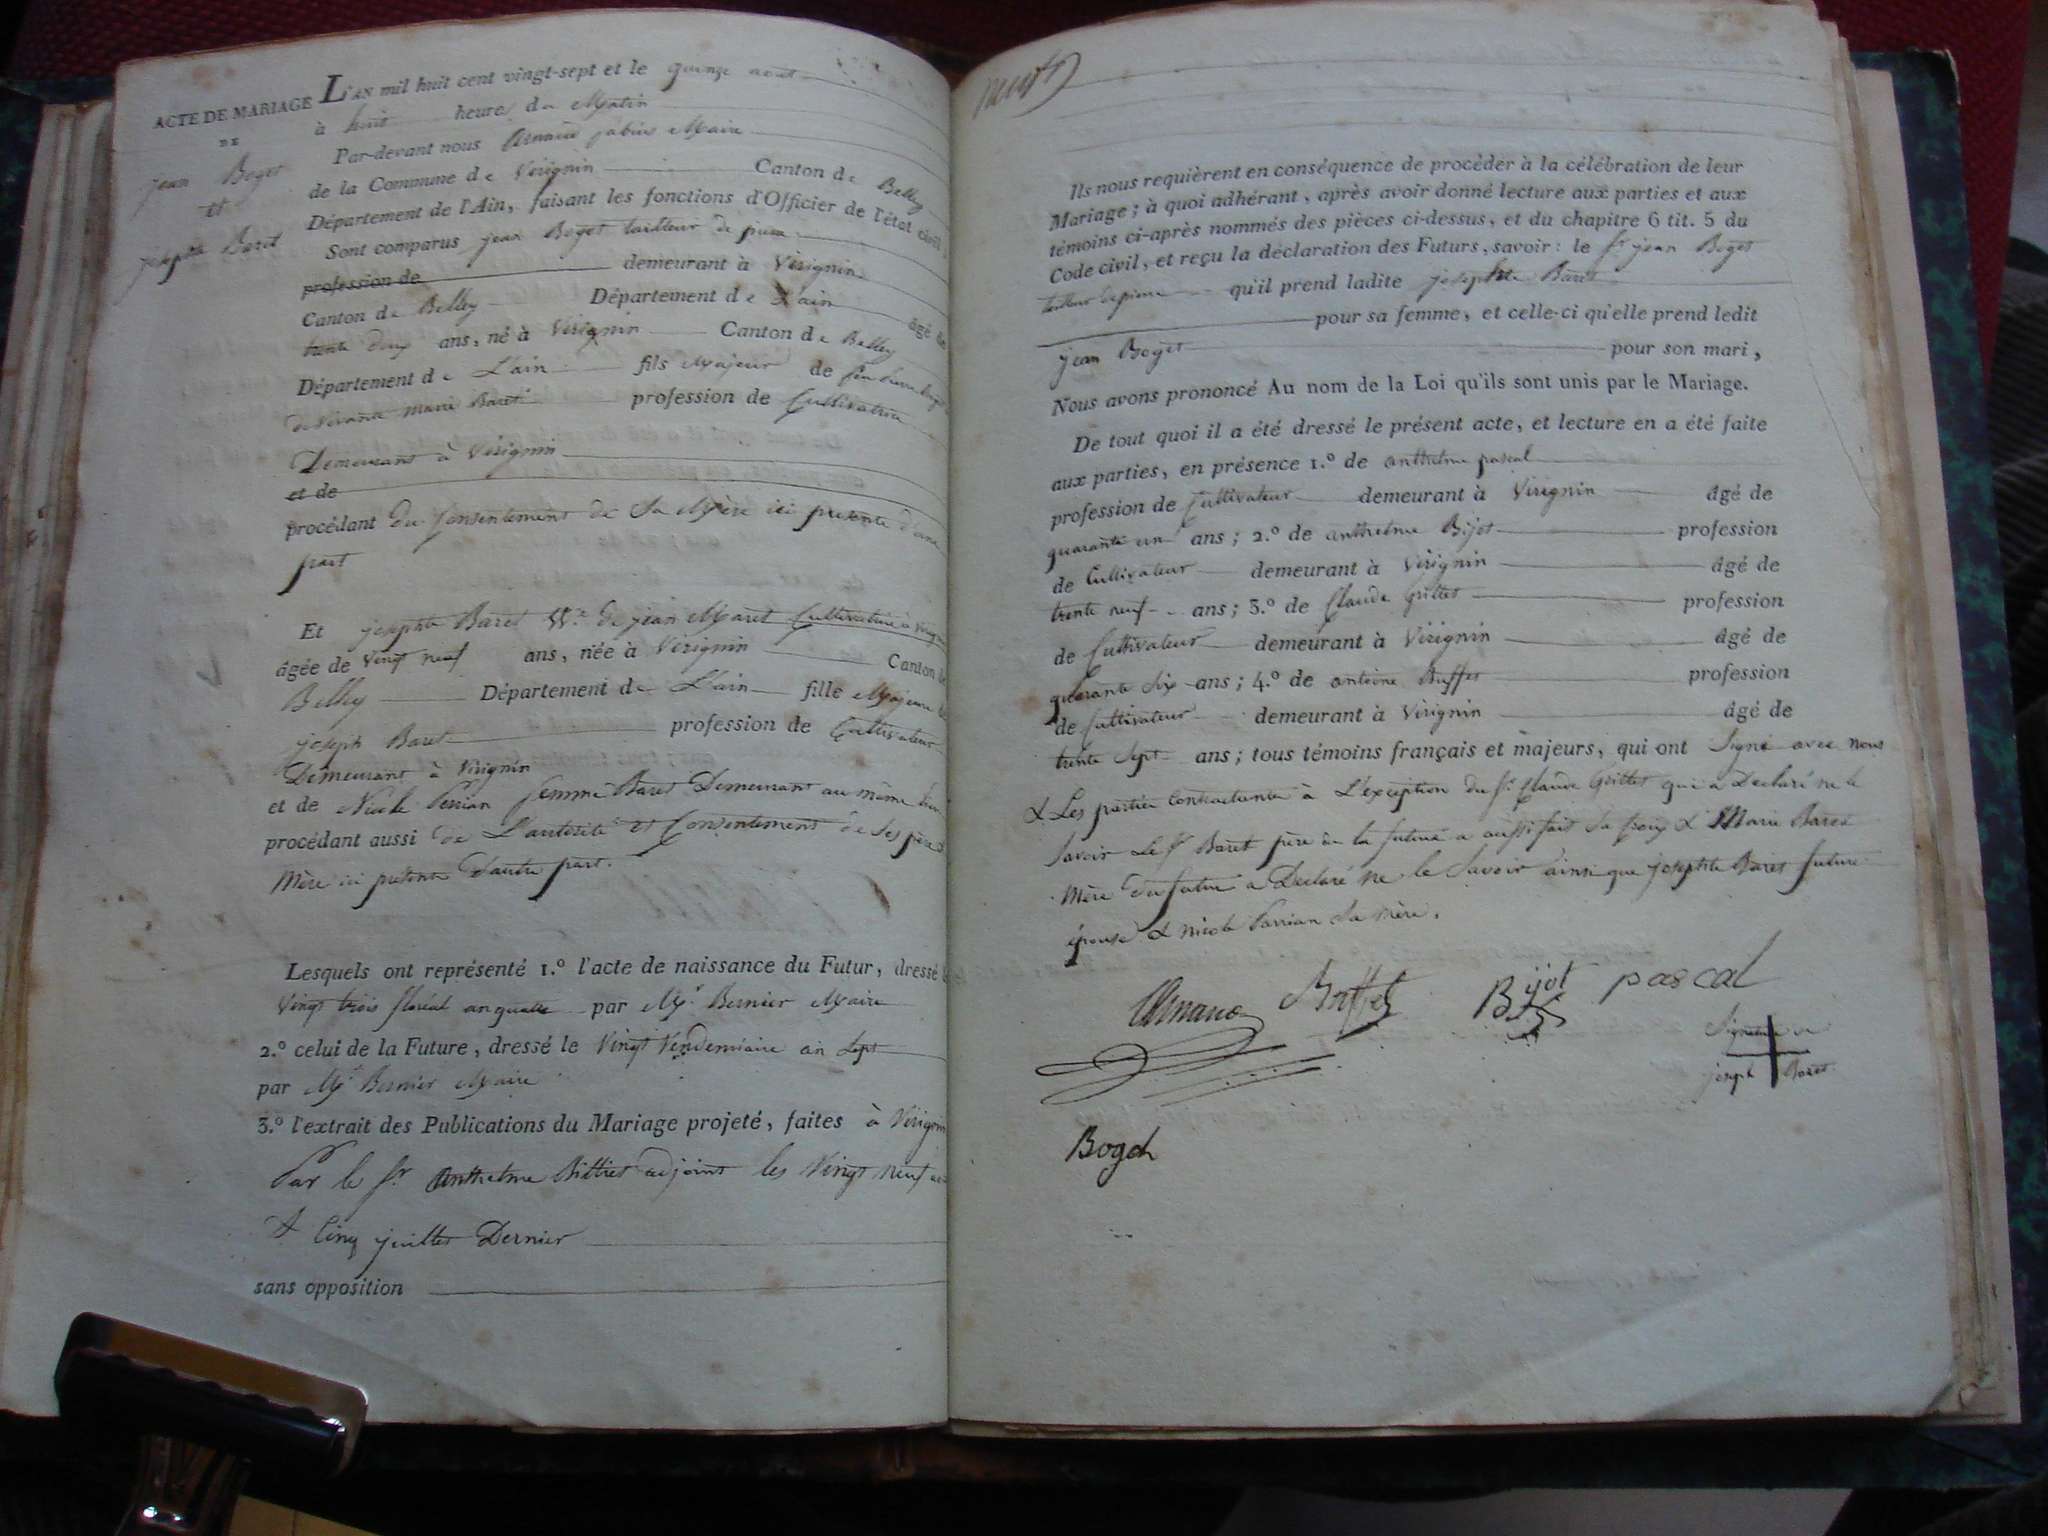 ACTE DE MARIAGE
DE
jean Boget
et
josephte Baret
L'AN mil huit cent vingt-sept et le quinze aout
à huit heures du Matin
Par-devant nous Arnaud Maire
de la Commune de Virignin Canton de Belley
Département de l'Ain, faisant les fonctions d'Officier de l'état civil,
Sont comparus jean Boget tailleur de pierre
profession de demeurant à Virignin
Canton de Belley Département de L'ain âgé de
trente deux ans, né à Virignin Canton de Belley
Département de L'ain fils Majeur de feu
de vivante marie Baret profession de Cultivatrice
Demeurant à Virignin
et de
procédant du Consentement de Sa Mère ici presente d'une
part
Et josephte Baret Vve de jean Maret Cultivatrice à Virignin
âgée de vingt neuf ans, née à Virignin Canton de
Belley Département de L'ain fille Majeure de
joseph Baret profession de Cultivateur
Demeurant à Virignin
et de Nicole Perrian femme Baret Demeurant au même lieu
procédant aussi de L'autorité et Consentement de Ses père &
Mère ici presente d'autre part.
Lesquels ont représenté 1.º l'acte de naissance du Futur, dressé le
Vingt trois floréal an quatre par Mr Bernier Maire
2.º celui de la Future, dressé le Vingt Vendemiaire an Sept
par Mr Bernier Maire
3.º l'extrait des Publications du Mariage projeté, faites à Virignin
Par le Sr Anthelme Billiet adjoint les Vingt neuf
& Cinq juillet Dernier
sans opposition
neuf
Ils nous requièrent en conséquence de procéder à la célébration de leur
Mariage; à quoi adhérant, après avoir donné lecture aux parties et aux
témoins ci-après nommés des pièces ci-dessus, et du chapitre 6 tit. 5 du
Code civil, et reçu la déclaration des Futurs, savoir: le Sr jean Boget
tailleur de pierre qu'il prend ladite josephte Baret
pour sa femme, et celle-ci qu'elle prend ledit
jean Boget pour son mari,
Nous avons prononcé Au nom de la Loi qu'ils sont unis par le Mariage.
De tout quoi il a été dressé le présent acte, et lecture en a été faite
aux parties, en présence 1.º de anthelme pascal
profession de Cultivateur demeurant à Virignin âgé de
quarante un ans; 2.º de anthelme Bijot profession
de Cultivateur demeurant à Virignin âgé de
trente neuf ans; 3.º de Claude Grillet profession
de Cultivateur demeurant à Virignin âgé de
quarante Six ans; 4.º de antoine Buffet profession
de Cultivateur demeurant à Virignin âgé de
trente Sept ans; tous témoins français et majeurs, qui ont Signé avec nous
& Les parties Contractantes à L'exception du Sr Claude Grillet qui a Declaré ne le
Savoir Le Sr Baret père de la future a aussi fait Sa Croix & Marie Baret
Mère du futur a Declaré ne le Savoir ainsi que josephte Baret future
épouse & nicole Parrian Sa mère.
Arnaud Buffet Bijot pascal
Signature de
joseph Baret
Boget